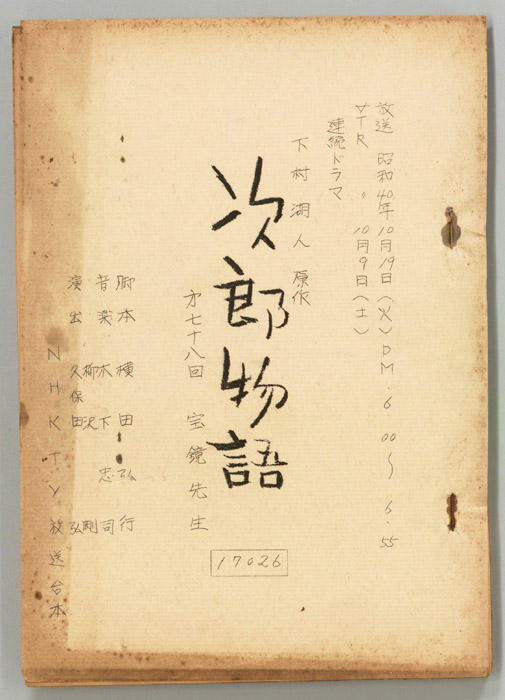 放送 昭和40年10月19日(火)PM.6.00〜6.55
VTR 〃 10月9日(土)
連続ドラマ
下村湖人 原作
次郎物語
第七十八回 宝鏡先生
脚本 横田弘行
音楽 木下忠司
演出 柳沢剛
久保田弘
NHKTV放送台本
17026